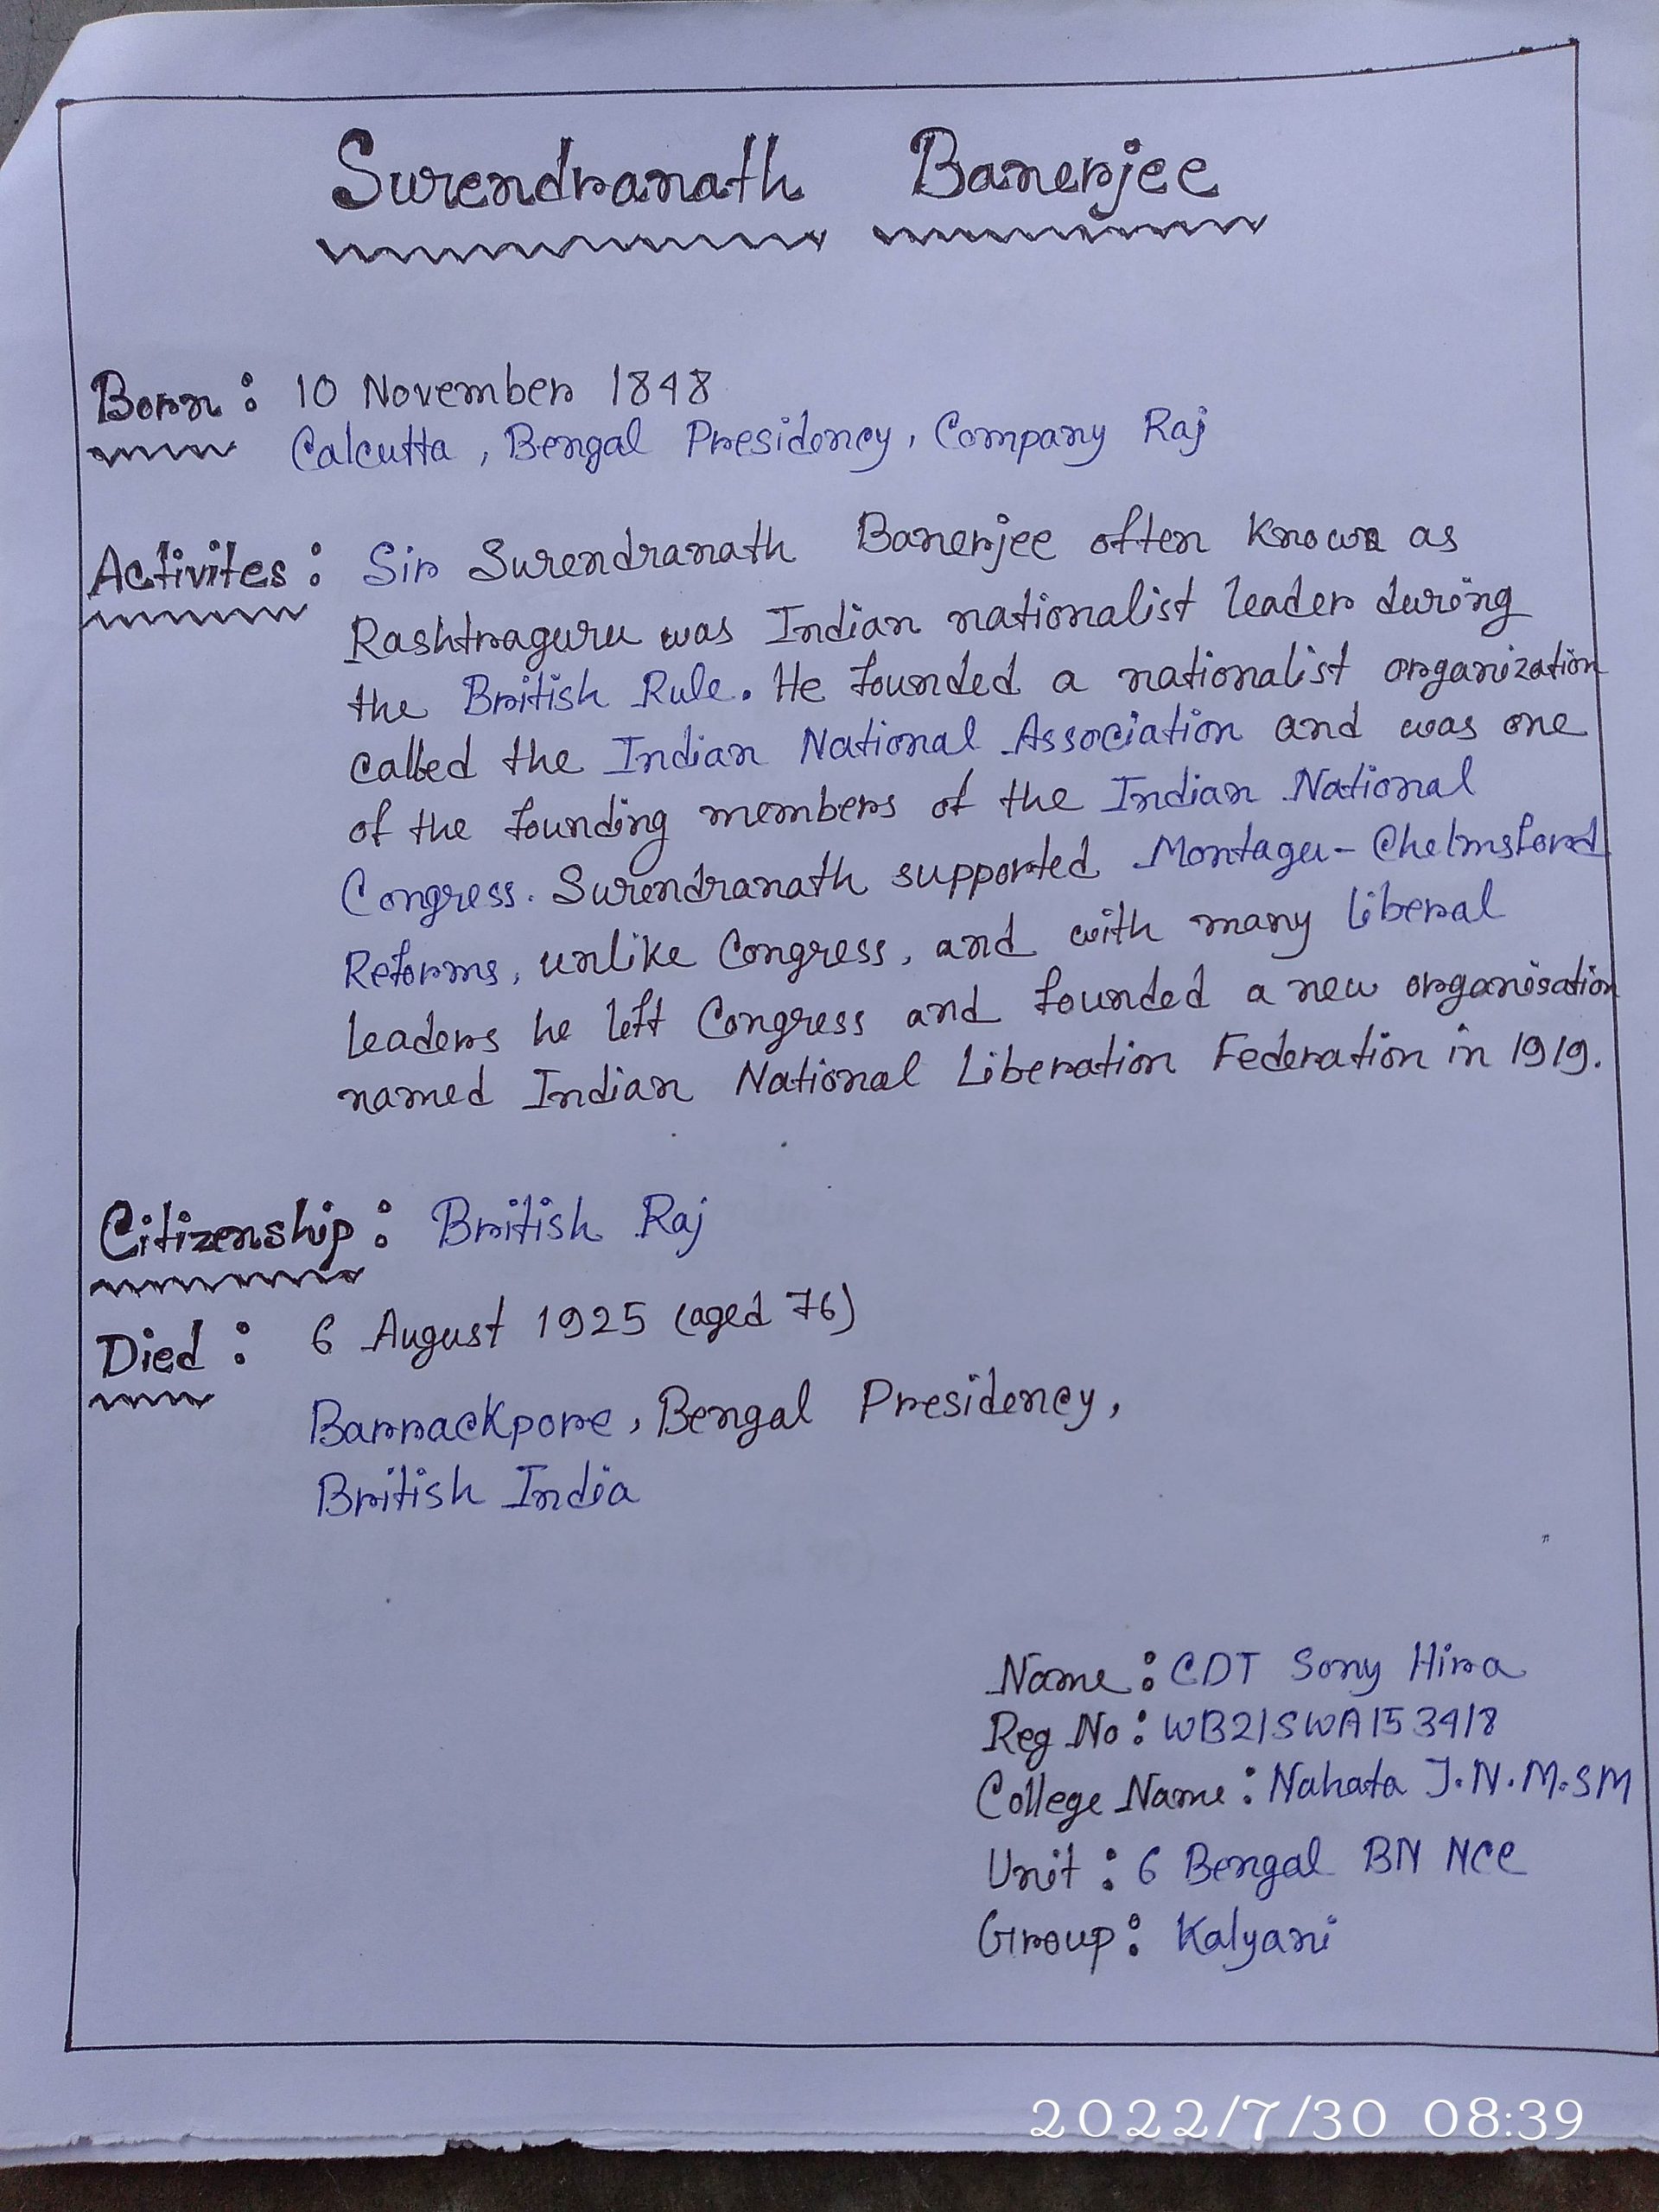 Surendranath Banerjee
Born: 10 November 1848
Calcutta, Bengal Presidency, Company Raj
Activites: Sir Surendranath Banerjee often known as
Rashtraguru was Indian nationalist leader during
the British Rule. He founded a nationalist organization
called the Indian National Association and was one
of the founding members of the Indian National
Congress. Surendranath supported Montagu-Chelmsford
Reforms, unlike Congress, and with many liberal
leaders he left Congress and founded a new organisation
named Indian National Liberation Federation in 1919.
Citizenship: British Raj
Died: 6 August 1925 (aged 76)
Barrackpore, Bengal Presidency,
British India
Name: CDT Sony Hira
Reg No: WB21SWA153418
College Name: Nahata J.N.M.SM
Unit: 6 Bengal BN NCC
Group: Kalyani
2022/7/30 08:39